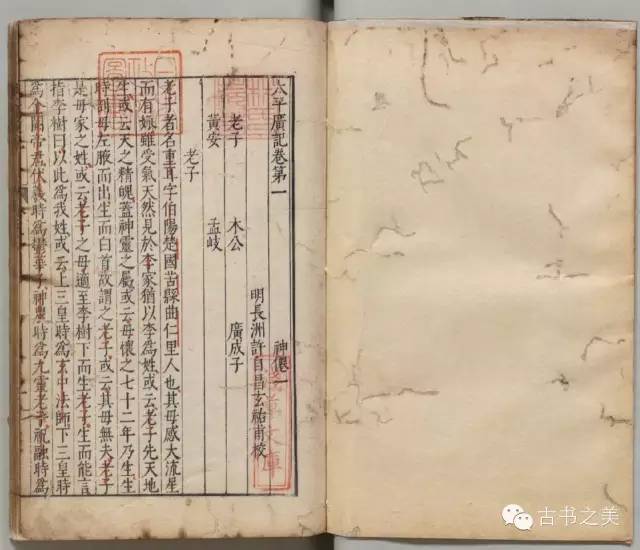 太平廣記卷第一
神僊一
明長洲許自昌玄祐甫校
老子 木公 廣成子
黃安 孟岐
老子
老子者名重耳字伯陽楚國苦縣曲仁里人也其母感大流星
而有娠雖受氣天然見於李家猶以李爲姓或云老子先天地
生或云天之精魄蓋神靈之屬或云母懷之七十二年乃生生
時剖母左腋而出生而白首故謂之老子或云其母無夫老子
是母家之姓或云老子之母適至李樹下而生老子生而能言
指李樹曰以此爲我姓或云上三皇時爲玄中法師下三皇時
爲金闕帝君伏羲時爲鬱華子神農時爲九靈老子祝融時爲
文庫
古书之美